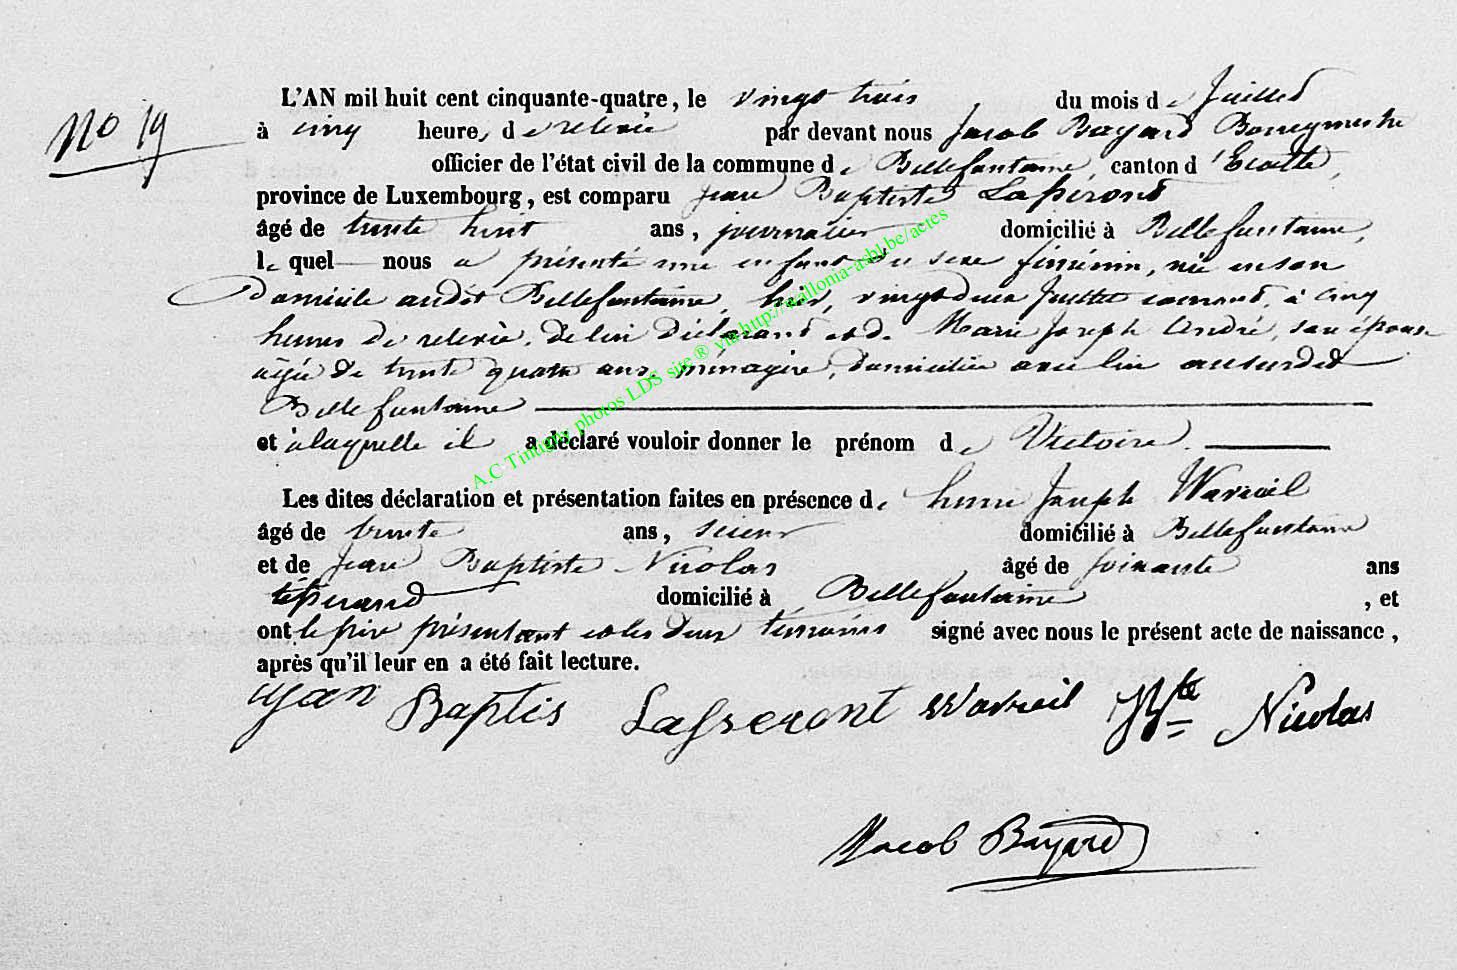 No 19
L'AN mil huit cent cinquante-quatre, le vingt trois du mois de Juillet
à cinq heures de relevée par devant nous Jacob Bayard Bourgmestre
officier de l'état civil de la commune de Bellefontaine, canton d'Etalle,
province de Luxembourg, est comparu Jean Baptiste Lapérond
âgé de trente huit ans, journalier domicilié à Bellefontaine,
lequel nous a présenté une enfant du sexe féminin, née en son
domicile audit Bellefontaine, hier, vingt deux Juillet courant, à cinq
heures de relevée, de lui déclarant et de Marie Joseph André, son épouse
âgée de trente quatre ans, ménagère, domiciliée avec lui au susdit
Bellefontaine
et à laquelle il a déclaré vouloir donner le prénom de Victoire
Les dites déclaration et présentation faites en présence de henri Joseph Wavreil
âgé de trente ans, scieur domicilié à Bellefontaine
et de Jean Baptiste Nicolas âgé de soixante ans
tisserand domicilié à Bellefontaine, et
ont le père présentant et les deux témoins signé avec nous le présent acte de naissance,
après qu'il leur en a été fait lecture.
Jean Baptis Wavreil Nicolas
Jacob Bayard
A.C Tintigny photos LDS site ® via http://wallonia-asbl.be/actes